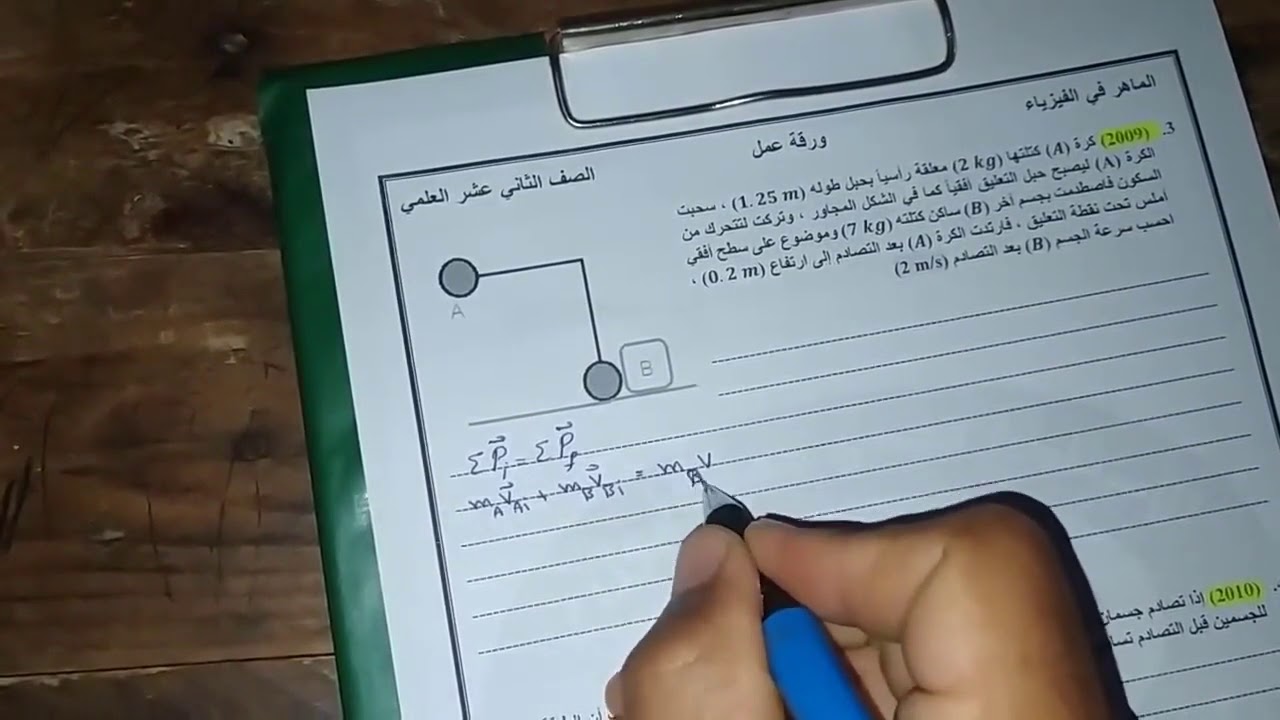 الماهر في الفيزياء
ورقة عمل
الصف الثاني عشر العلمي
3. (2009) كرة (A) كتلتها (2 kg) معلقة رأسياً بحبل طوله (1.25 m) ، سحبت
الكرة (A) ليصبح حبل التعليق أفقياً كما في الشكل المجاور ، وتركت لتتحرك من
السكون فاصطدمت بجسم آخر (B) ساكن كتلته (7 kg) وموضوع على سطح أفقي
أملس تحت نقطة التعليق ، فارتدت الكرة (A) بعد التصادم إلى ارتفاع (0.2 m) ،
احسب سرعة الجسم (B) بعد التصادم (2 m/s)
A
B
Σ P⃗i = Σ P⃗f
mA V⃗Ai + mB V⃗Bi = mA V
(2010) إذا تصادم جسمان
للجسمين قبل التصادم